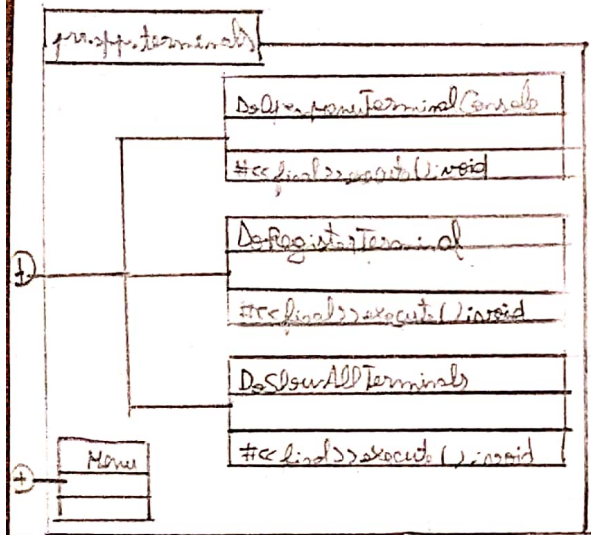 prr.app.terminals
DoOpenMenuTerminalConsole
#<<final>>execute():void
DoRegisterTerminal
#<<final>>execute():void
DoShowAllTerminals
#<<final>>execute():void
+
Menu
+